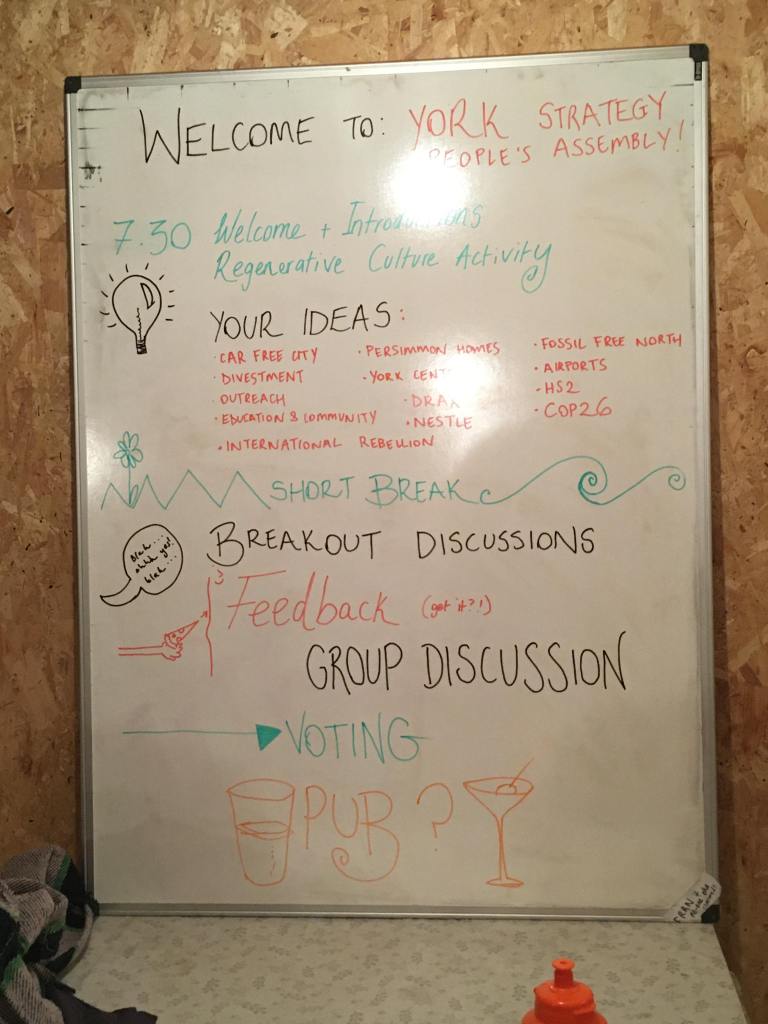 WELCOME TO: YORK STRATEGY
PEOPLE'S ASSEMBLY!
7.30 Welcome + Introductions
Regenerative Culture Activity
YOUR IDEAS:
· CAR FREE CITY · PERSIMMON HOMES · FOSSIL FREE NORTH
· DIVESTMENT · YORK CENT · AIRPORTS
· OUTREACH · DRAX · HS2
· EDUCATION & COMMUNITY · NESTLE · COP26
· INTERNATIONAL REBELLION
SHORT BREAK
Blah....
ahhh yes!
blah...
BREAKOUT DISCUSSIONS
Feedback (get it?!)
GROUP DISCUSSION
VOTING
PUB?
FRAN +